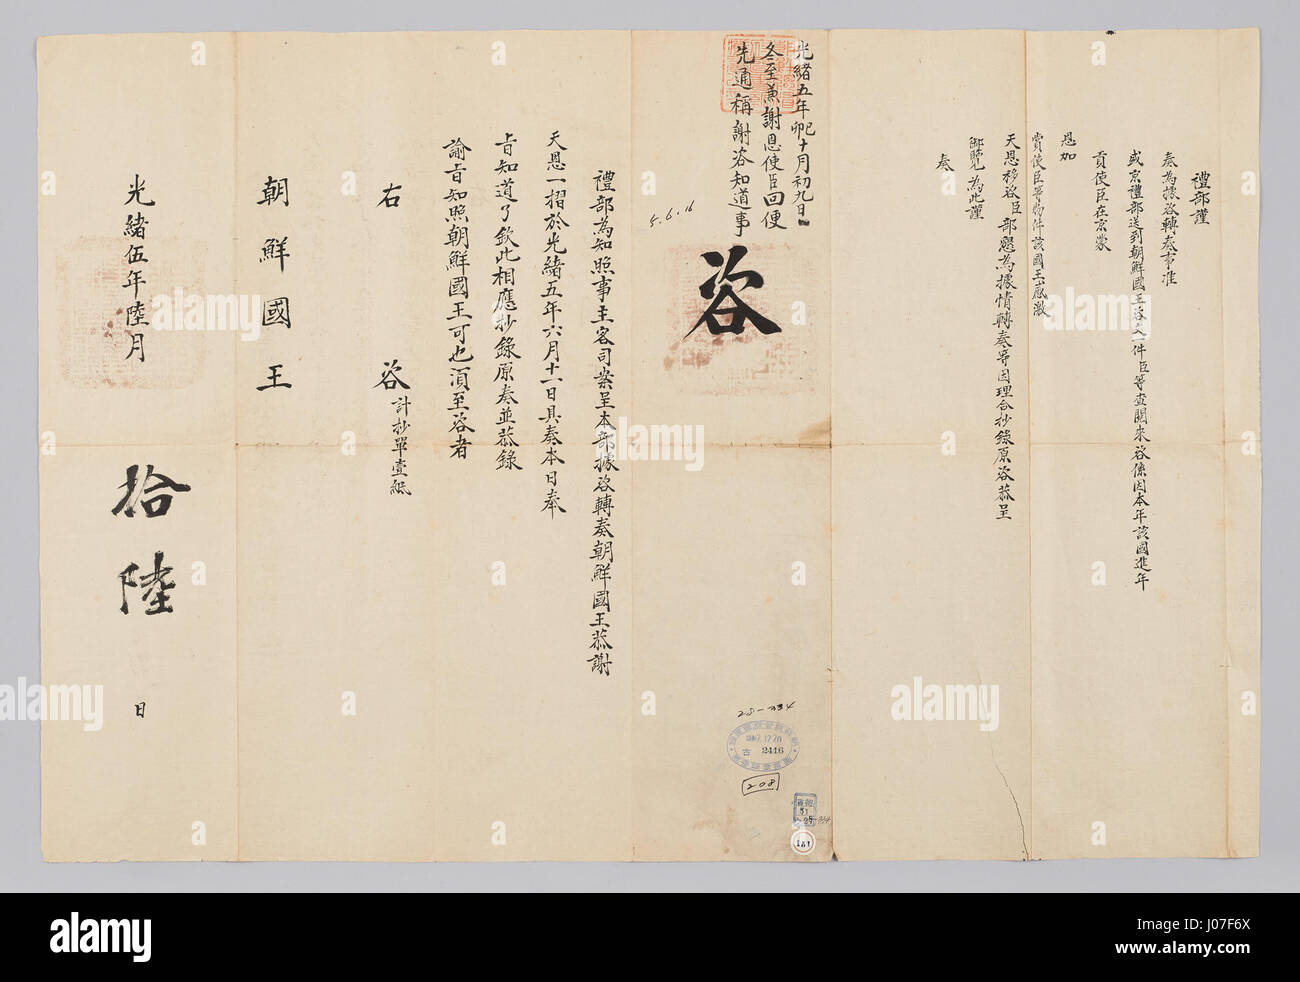 禮部謹
奏為據咨轉奏事准
盛京禮部送到朝鮮國王咨文一件臣等查閱來咨係因本年該國進年
貢使臣在京蒙
恩加
賞使臣等物件該國王感激
天恩移咨臣部懇為據情轉奏等因理合抄錄原咨恭呈
御覽為此謹
奏
光緒五年己卯十月初九日
冬至兼謝恩使臣回便
先通稱謝咨知道事
5.6.16
咨
28-334
2416
208
51
181
禮部為知照事主客司案呈本部據咨轉奏朝鮮國王恭謝
天恩一摺於光緒五年六月十一日具奏本日奉
旨知道了欽此相應抄錄原奏並恭錄
諭旨知照朝鮮國王可也須至咨者
右咨 計抄單壹紙
朝鮮國王
光緒伍年陸月拾陸日
alamy
a
alamy
www.alamy.com
Image ID: J07F6X